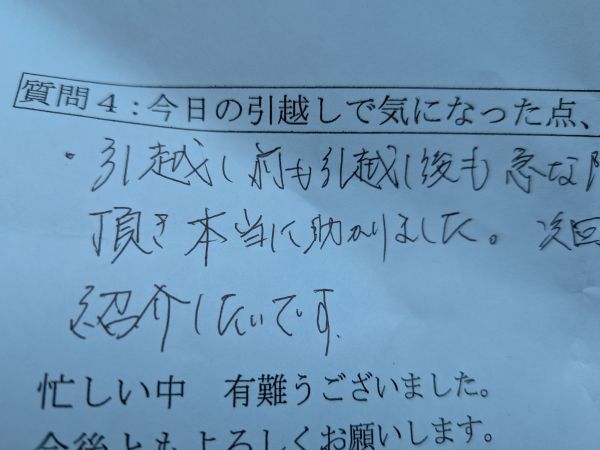 質問4:今日の引越しで気になった点、
・引越し前も引越し後も急な
頂き本当に助かりました。次回
紹介したいです。
忙しい中 有難うございました。
今後ともよろしくお願いします。